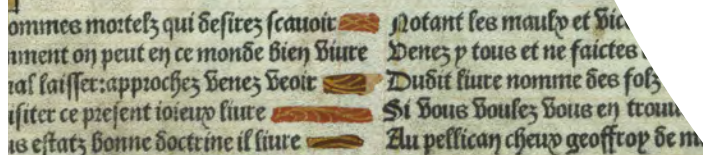 ommes mortelz qui desirez scavoir
mment on peut en ce monde bien vivre
mal laisser: approchez venez veoir
isiter ce present ioieux livre
us estatz bonne doctrine il livre
Notant les maulx et vic
Venez y tous et ne faictes
Dudit livre nomme des folz
Si vous voulez vous en trouu
Au pellican cheux geoffroy de m